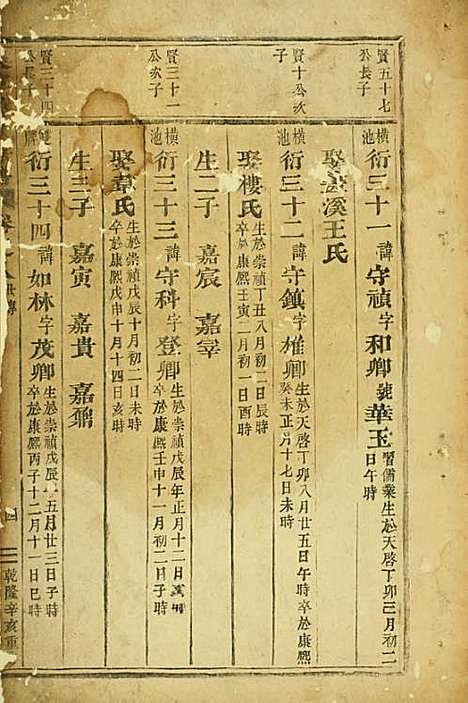 賢五十七
公長子
橫池
衍三十一諱守禎字和卿號華玉習儒業生於天啓丁卯三月初二
日午時
娶 溪王氏
賢十公次
子
橫池
衍三十二諱守鎮字權卿生於天啓丁卯八月廿五日午時卒於康熙
癸未正月十七日未時
娶樓氏生於崇禎丁丑八月初二日辰時
卒於康熙壬寅二月初一日酉時
生二子 嘉宸 嘉宰
賢三十一
公次子
橫池
衍三十三諱守科字登卿生於崇禎戊辰年正月十二日 時
卒於康熙壬申十一月初二日子時
娶韋氏生於崇禎戊辰十月初二日未時
卒於康熙戊申十月十四日亥時
生三子 嘉寅 嘉貴 嘉鼐
賢三十四
公長子
衍三十四諱如林字茂卿生於崇禎戊辰十五月廿三日子時
卒於康熙丙子十二月十一日巳時
世傳
四
乾隆辛亥重